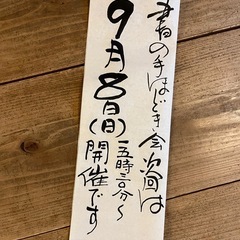 書の手ほどき会次回は
9月8日(日)一五時三〇分〜開催です